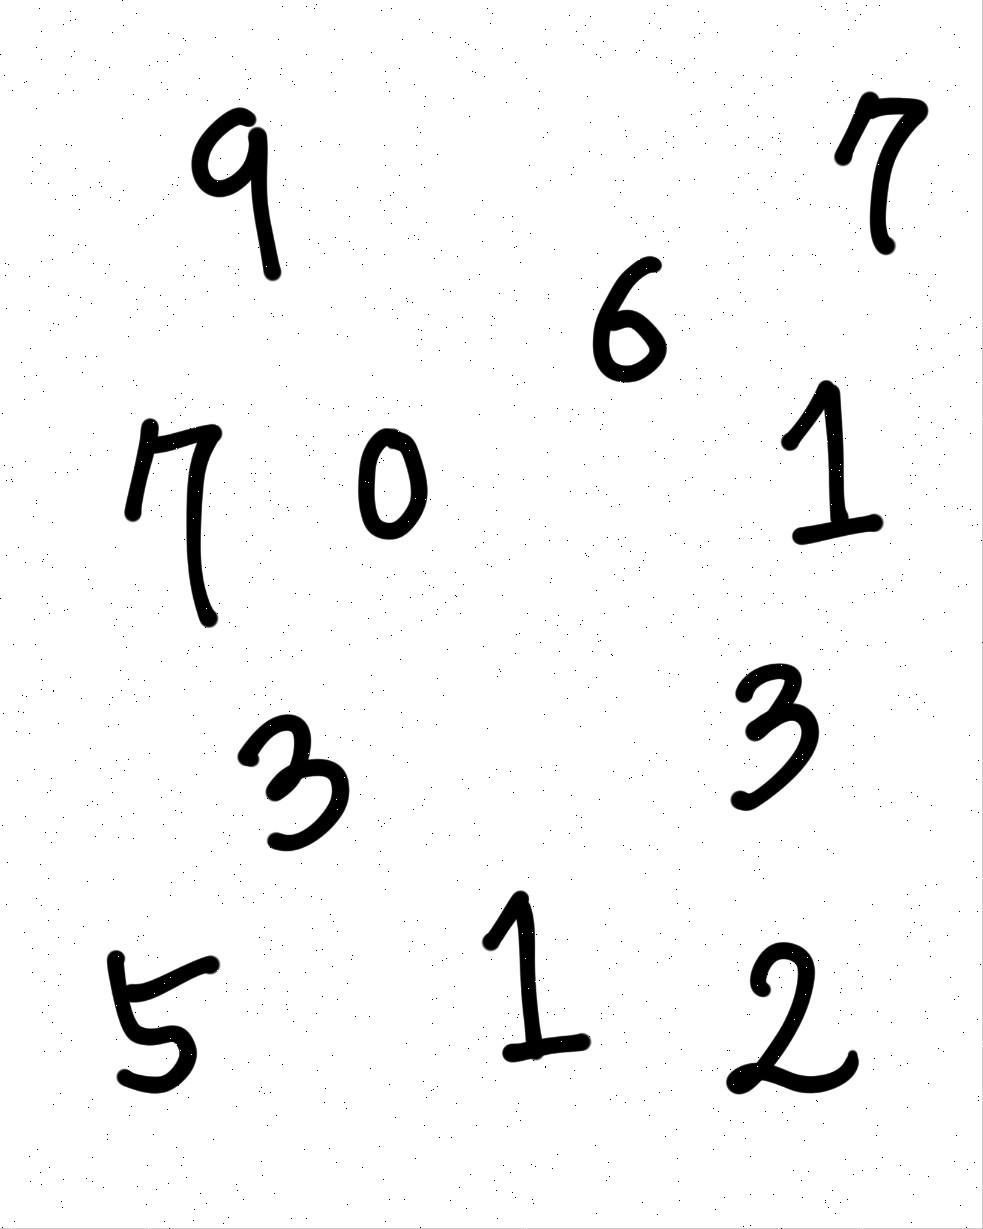 9 7
6
7 0 1
3 3
5 1 2